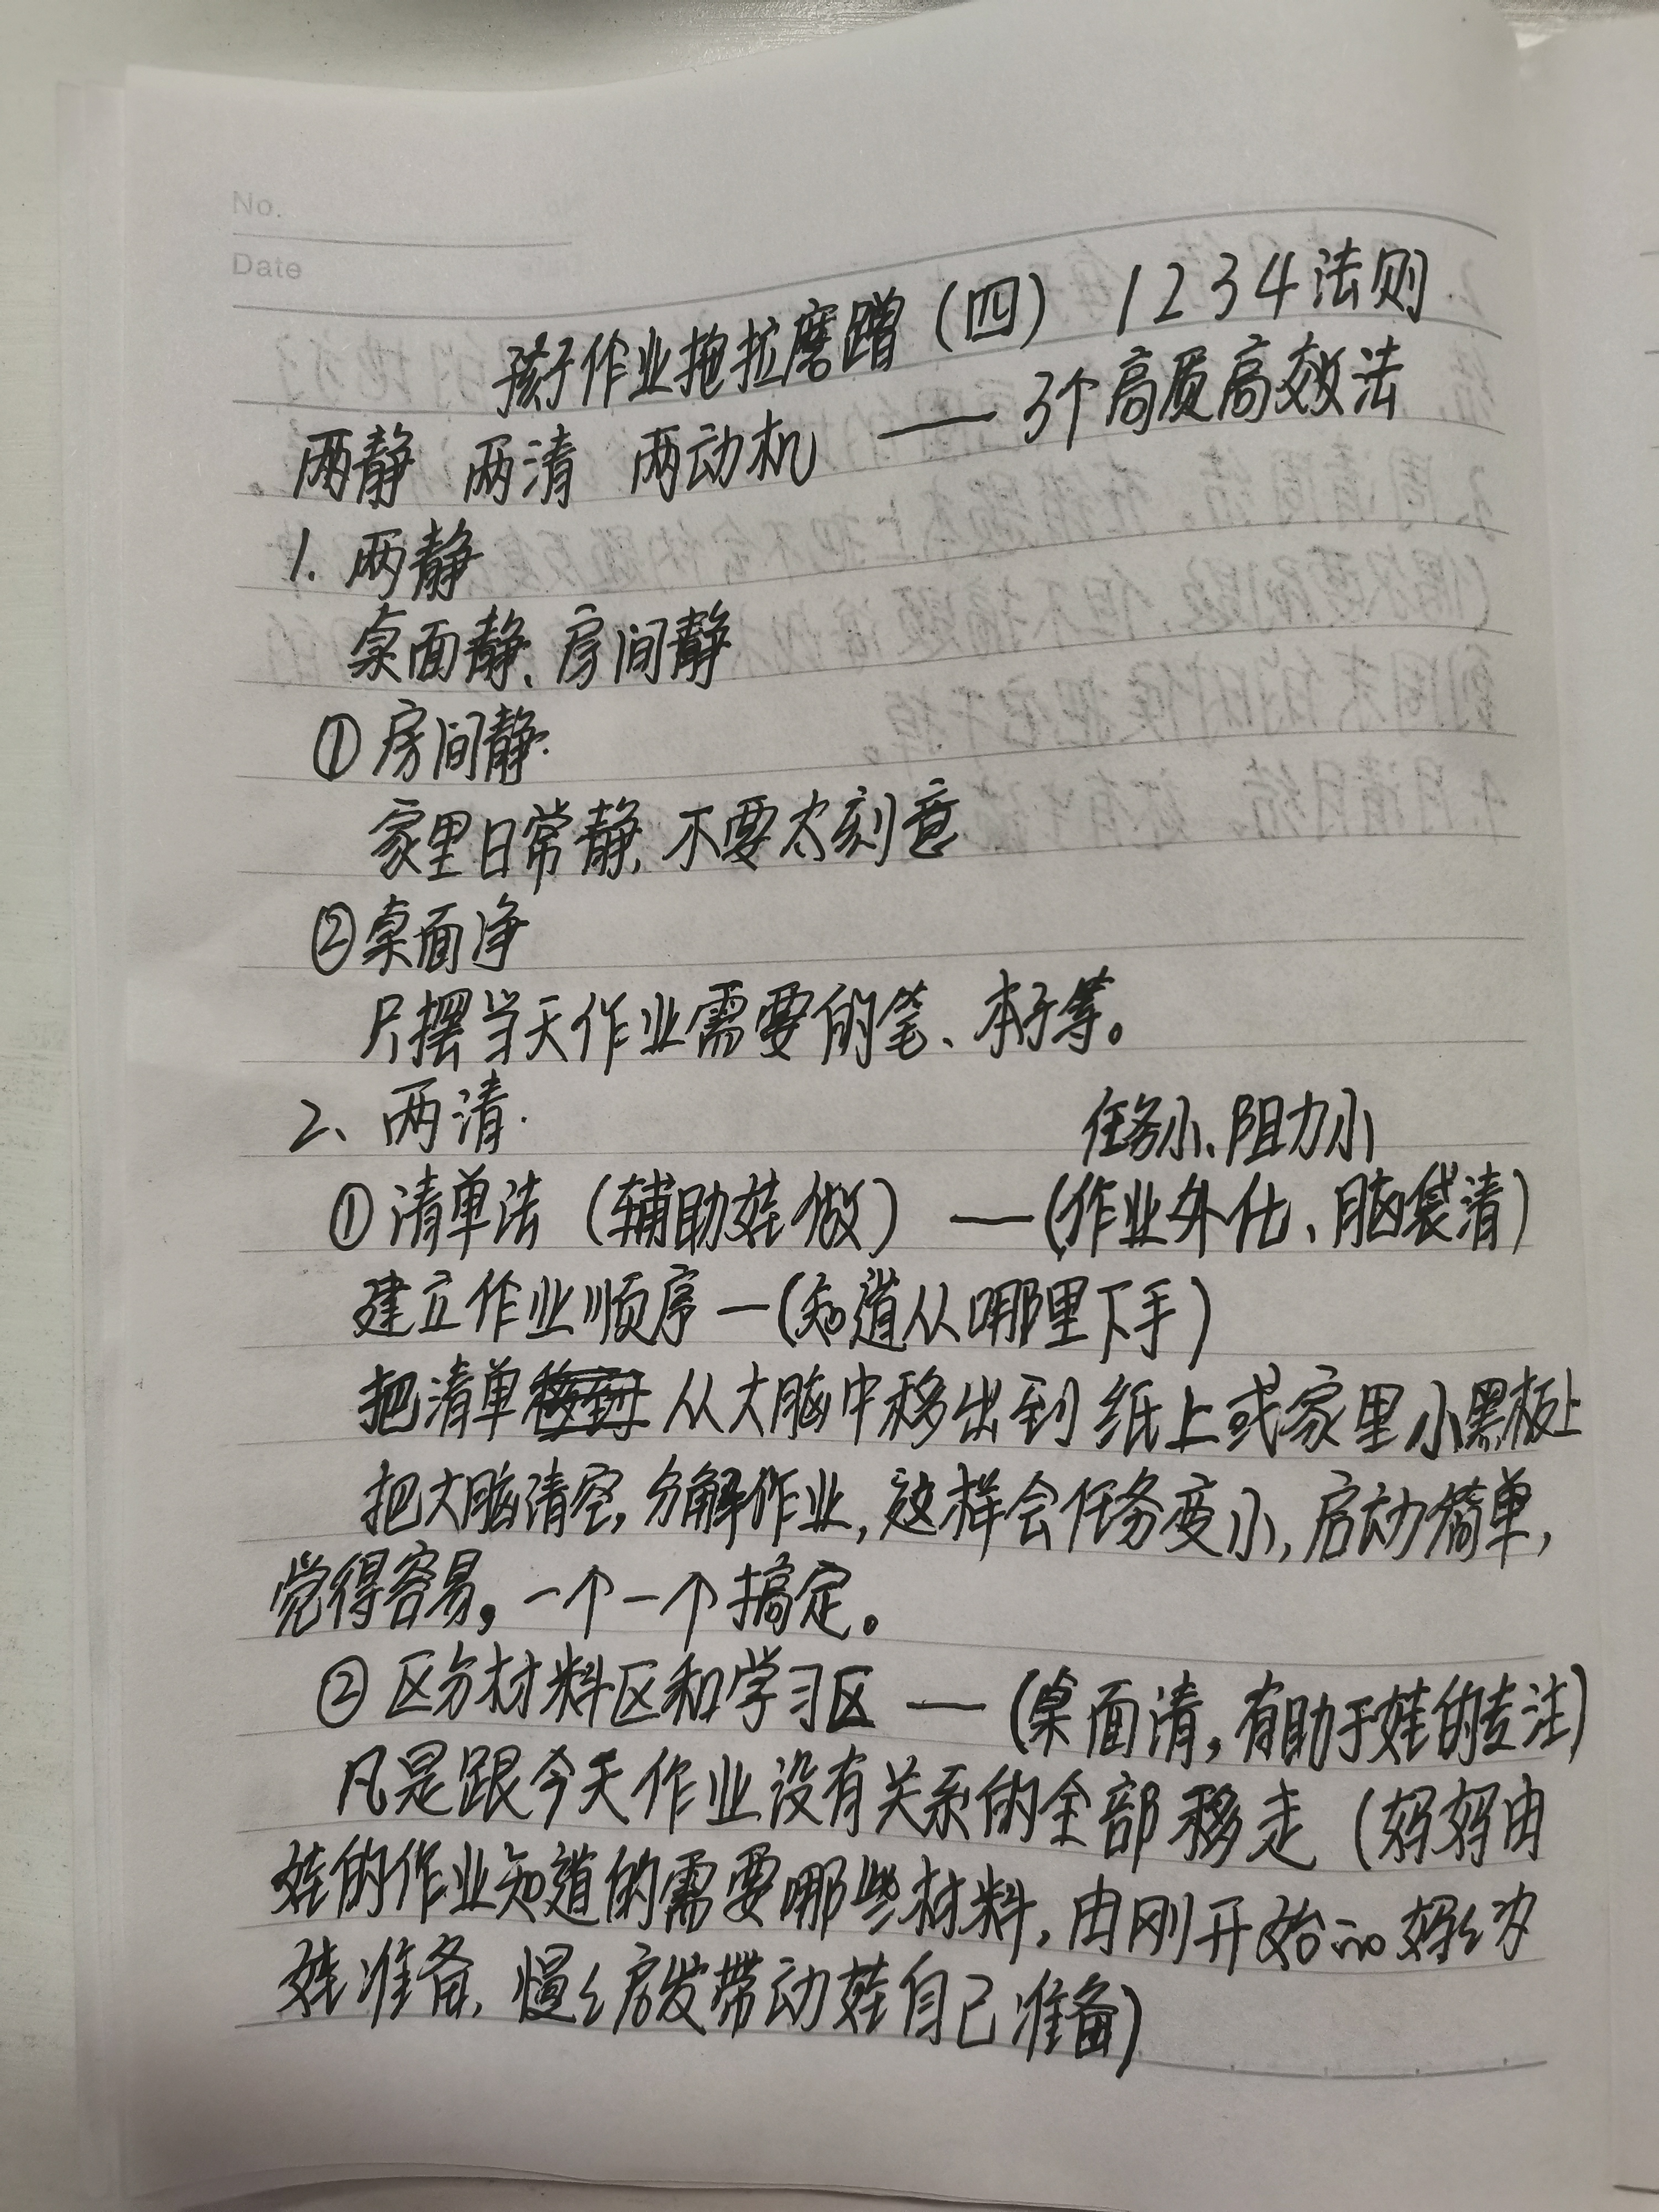 No.
Date
孩子作业拖拉磨蹭（四） 1234法则
两静 两清 两动机 —— 3个高质高效法
1. 两静
桌面静、房间静
① 房间静.
家里日常静, 不要太刻意
② 桌面净
只摆当天作业需要的笔、本子等。
2、两清.
任务小、阻力小
① 清单法（辅助娃做）——(作业外化、脑袋清)
建立作业顺序—(知道从哪里下手)
把清单从大脑中移出到纸上或家里小黑板上
把大脑清空, 分解作业, 这样会任务变小, 启动简单,
觉得容易, 一个一个搞定。
② 区分材料区和学习区——(桌面清, 有助于娃的专注)
凡是跟今天作业没有关系的全部移走（妈妈由
娃的作业知道的需要哪些材料, 由刚开始的妈々为
娃准备, 慢々启发带动娃自己准备)